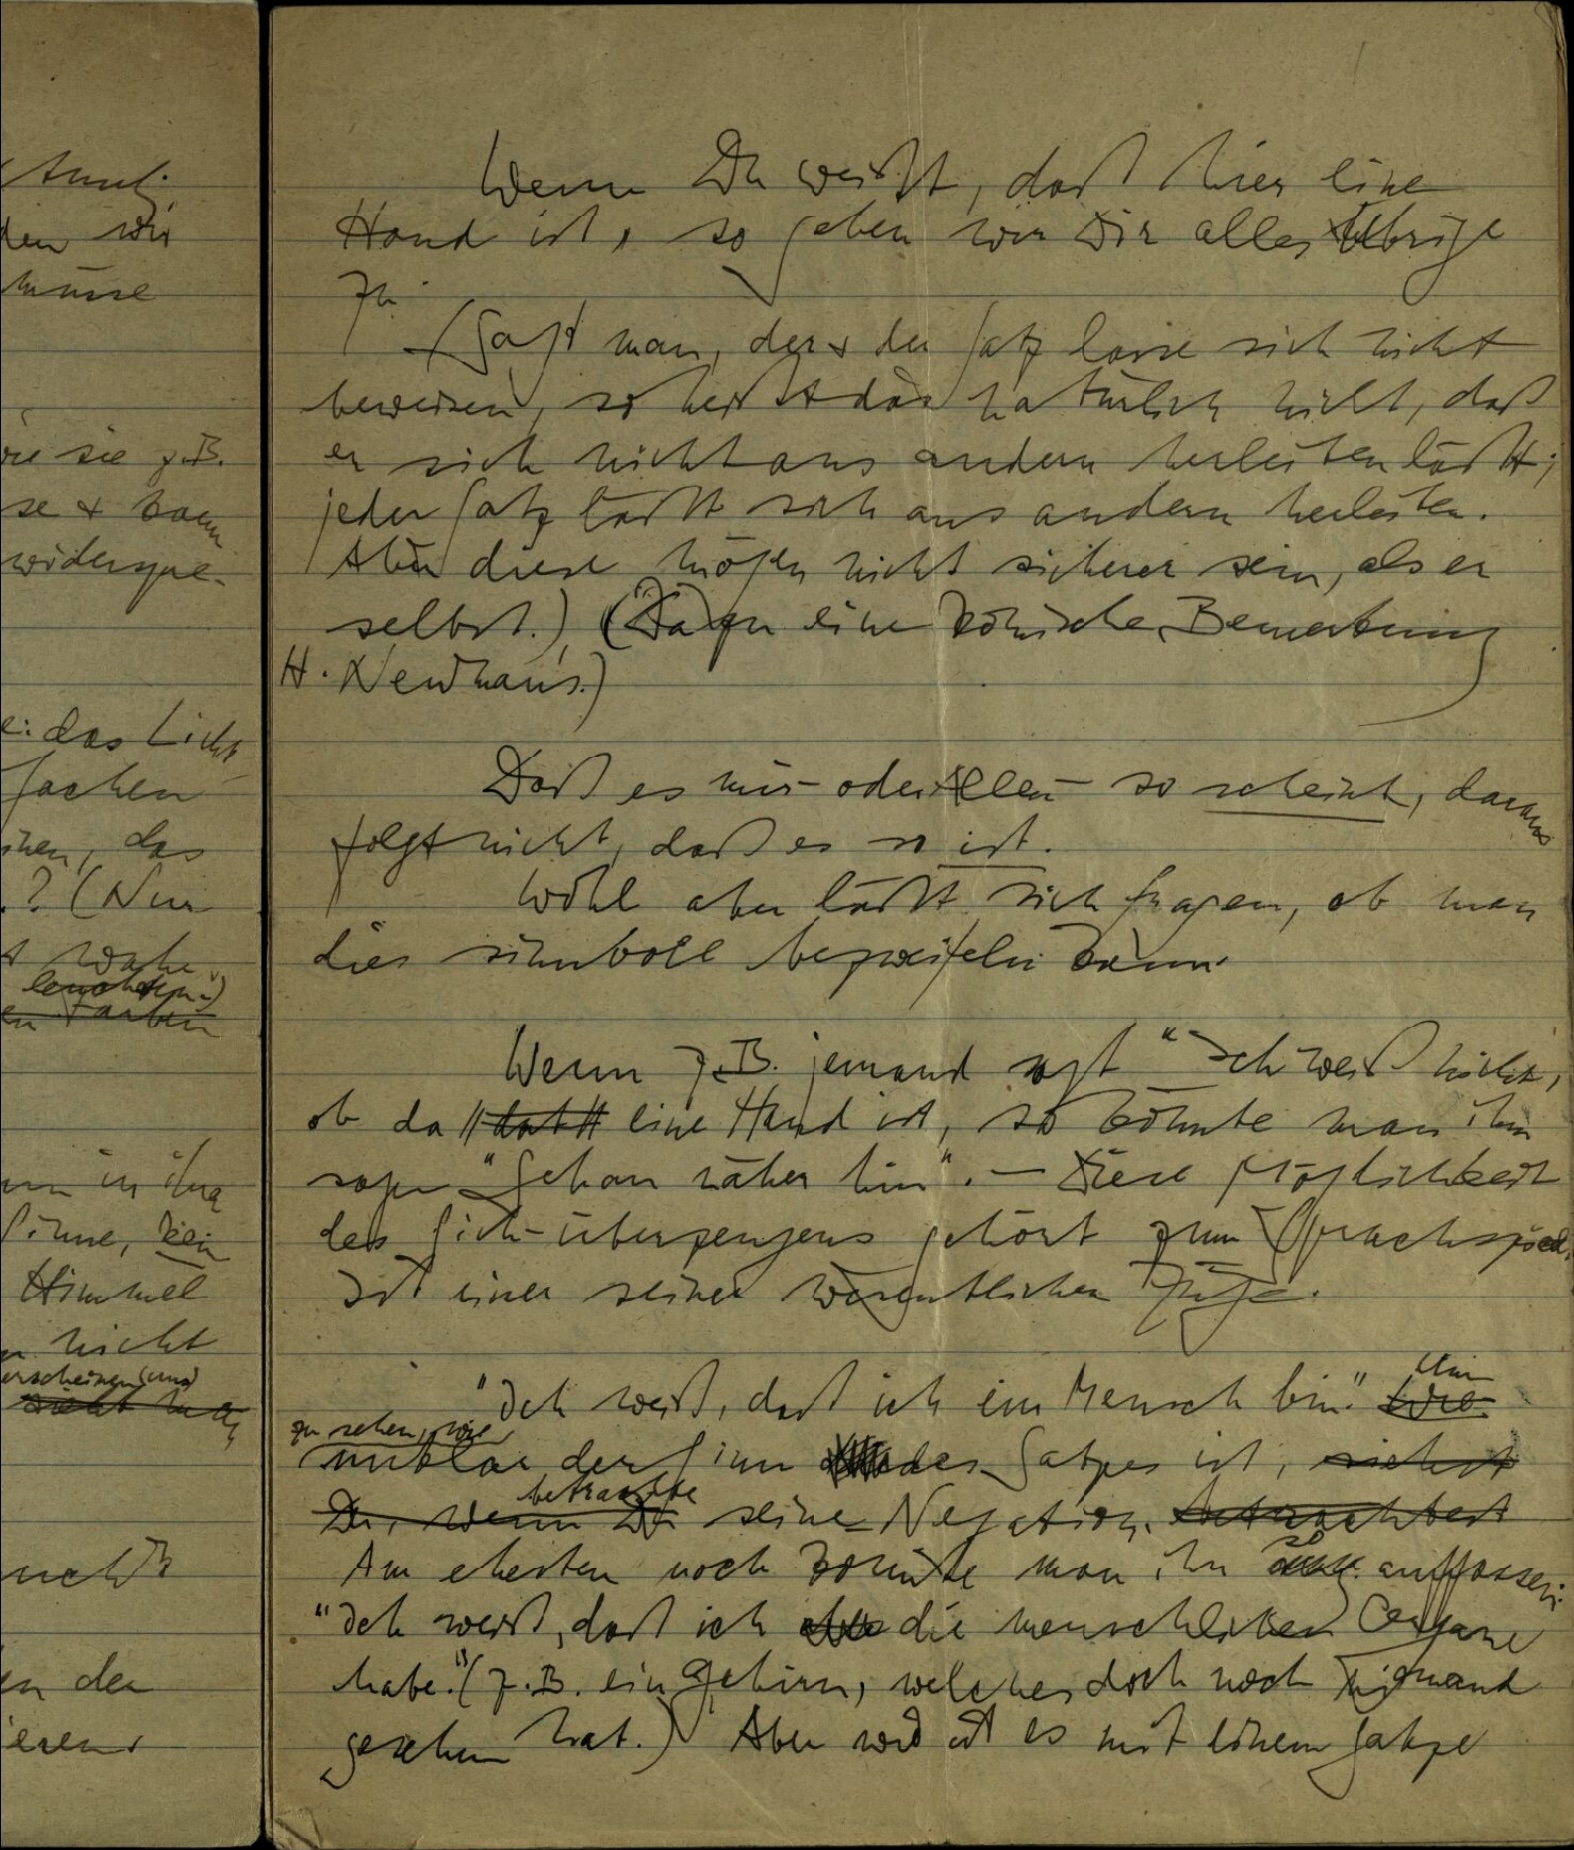 Amal.
den wir
müsse
wie sie z.B.
se & kann
widerspre-
e: das Licht
Sachen
das
? (Nur
wahr
leuchten.)
en Farben
nn in ihrg
Sinne, kein
Himmel
nicht
erscheinen (und)
en der
Wenn Du weißt, daß hier eine
Hand ist, so geben wir Dir alles Übrige
zu.
(Sagt man, der & der Satz lasse sich nicht
beweisen, so heißt das natürlich nicht, daß
er sich nicht aus andern herleiten läßt;
jeder Satz läßt sich aus andern herleiten.
Aber diese mögen nicht sicherer sein, als er
selbst.) (Dazu eine komische Bemerkung
H. Newman's.)
Daß es mir – oder Allen – so scheint, daraus
folgt nicht, daß es so ist.
Wohl aber läßt sich fragen, ob man
dies sinnvoll bezweifeln kann.
Wenn z.B. jemand sagt "Ich weiß nicht,
ob da eine Hand ist, so könnte man ihm
sagen "Schau näher hin". – Diese Möglichkeit
des Sich-überzeugens gehört zum Sprachspiel.
Ist einer seiner wesentlichen Züge.
"Ich weiß, daß ich ein Mensch bin." Um
zu sehen, wie
unklar der Sinn des Satzes ist, siehst
betrachte
Du, wenn Du seine Negation. betrachtest
Am ehesten noch könnte man ihn so auffassen:
"Ich weiß, daß ich die menschlichen Organe
habe." (z.B. ein Gehirn, welches doch noch niemand
gesehen hat.) Aber wie ist es mit einem Satze